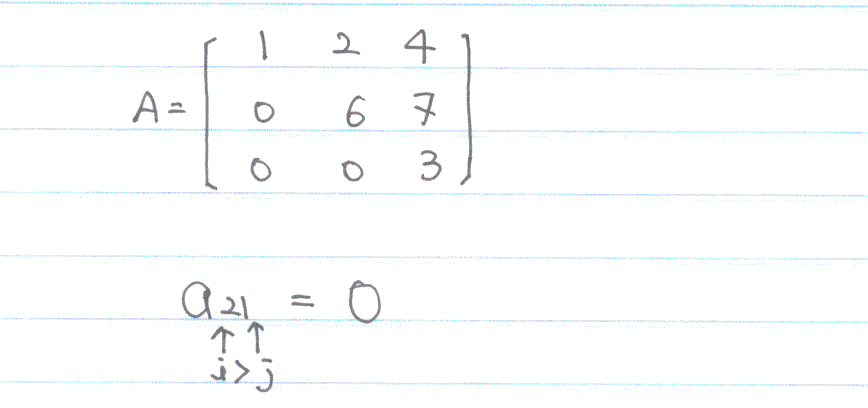 1 2 4
A = 0 6 7
0 0 3
a21 = 0
↑ ↑
i > j